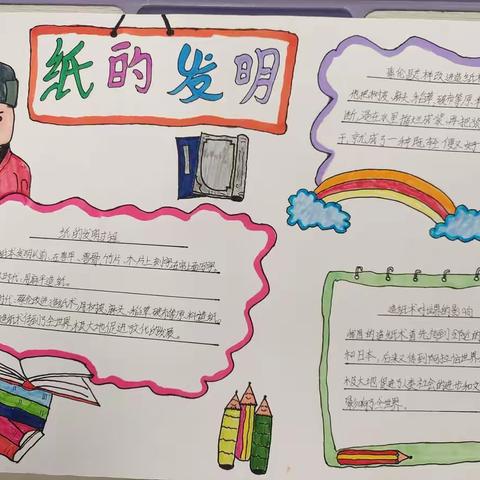 纸的发明
蔡伦是怎样改进造纸术
他把树皮、麻头、稻草、破布等原料
断,浸在水里捣烂成浆,再把浆
干就成了一种既轻便又好
纸的发明过程
术发明以前,在龟甲、兽骨、竹片、木片上到
时代,用麻造纸。
时代,蔡伦改进造纸术,用树皮、麻头、稻草、破布等原料造纸。
造纸术传到了全世界,极大地促进文化的发展。
造纸术对世界的影响
我国的造纸术首先传到邻近的
和日本,后来又传到阿拉伯世界
极大地促进了人类社会的进步和文
影响了全世界。